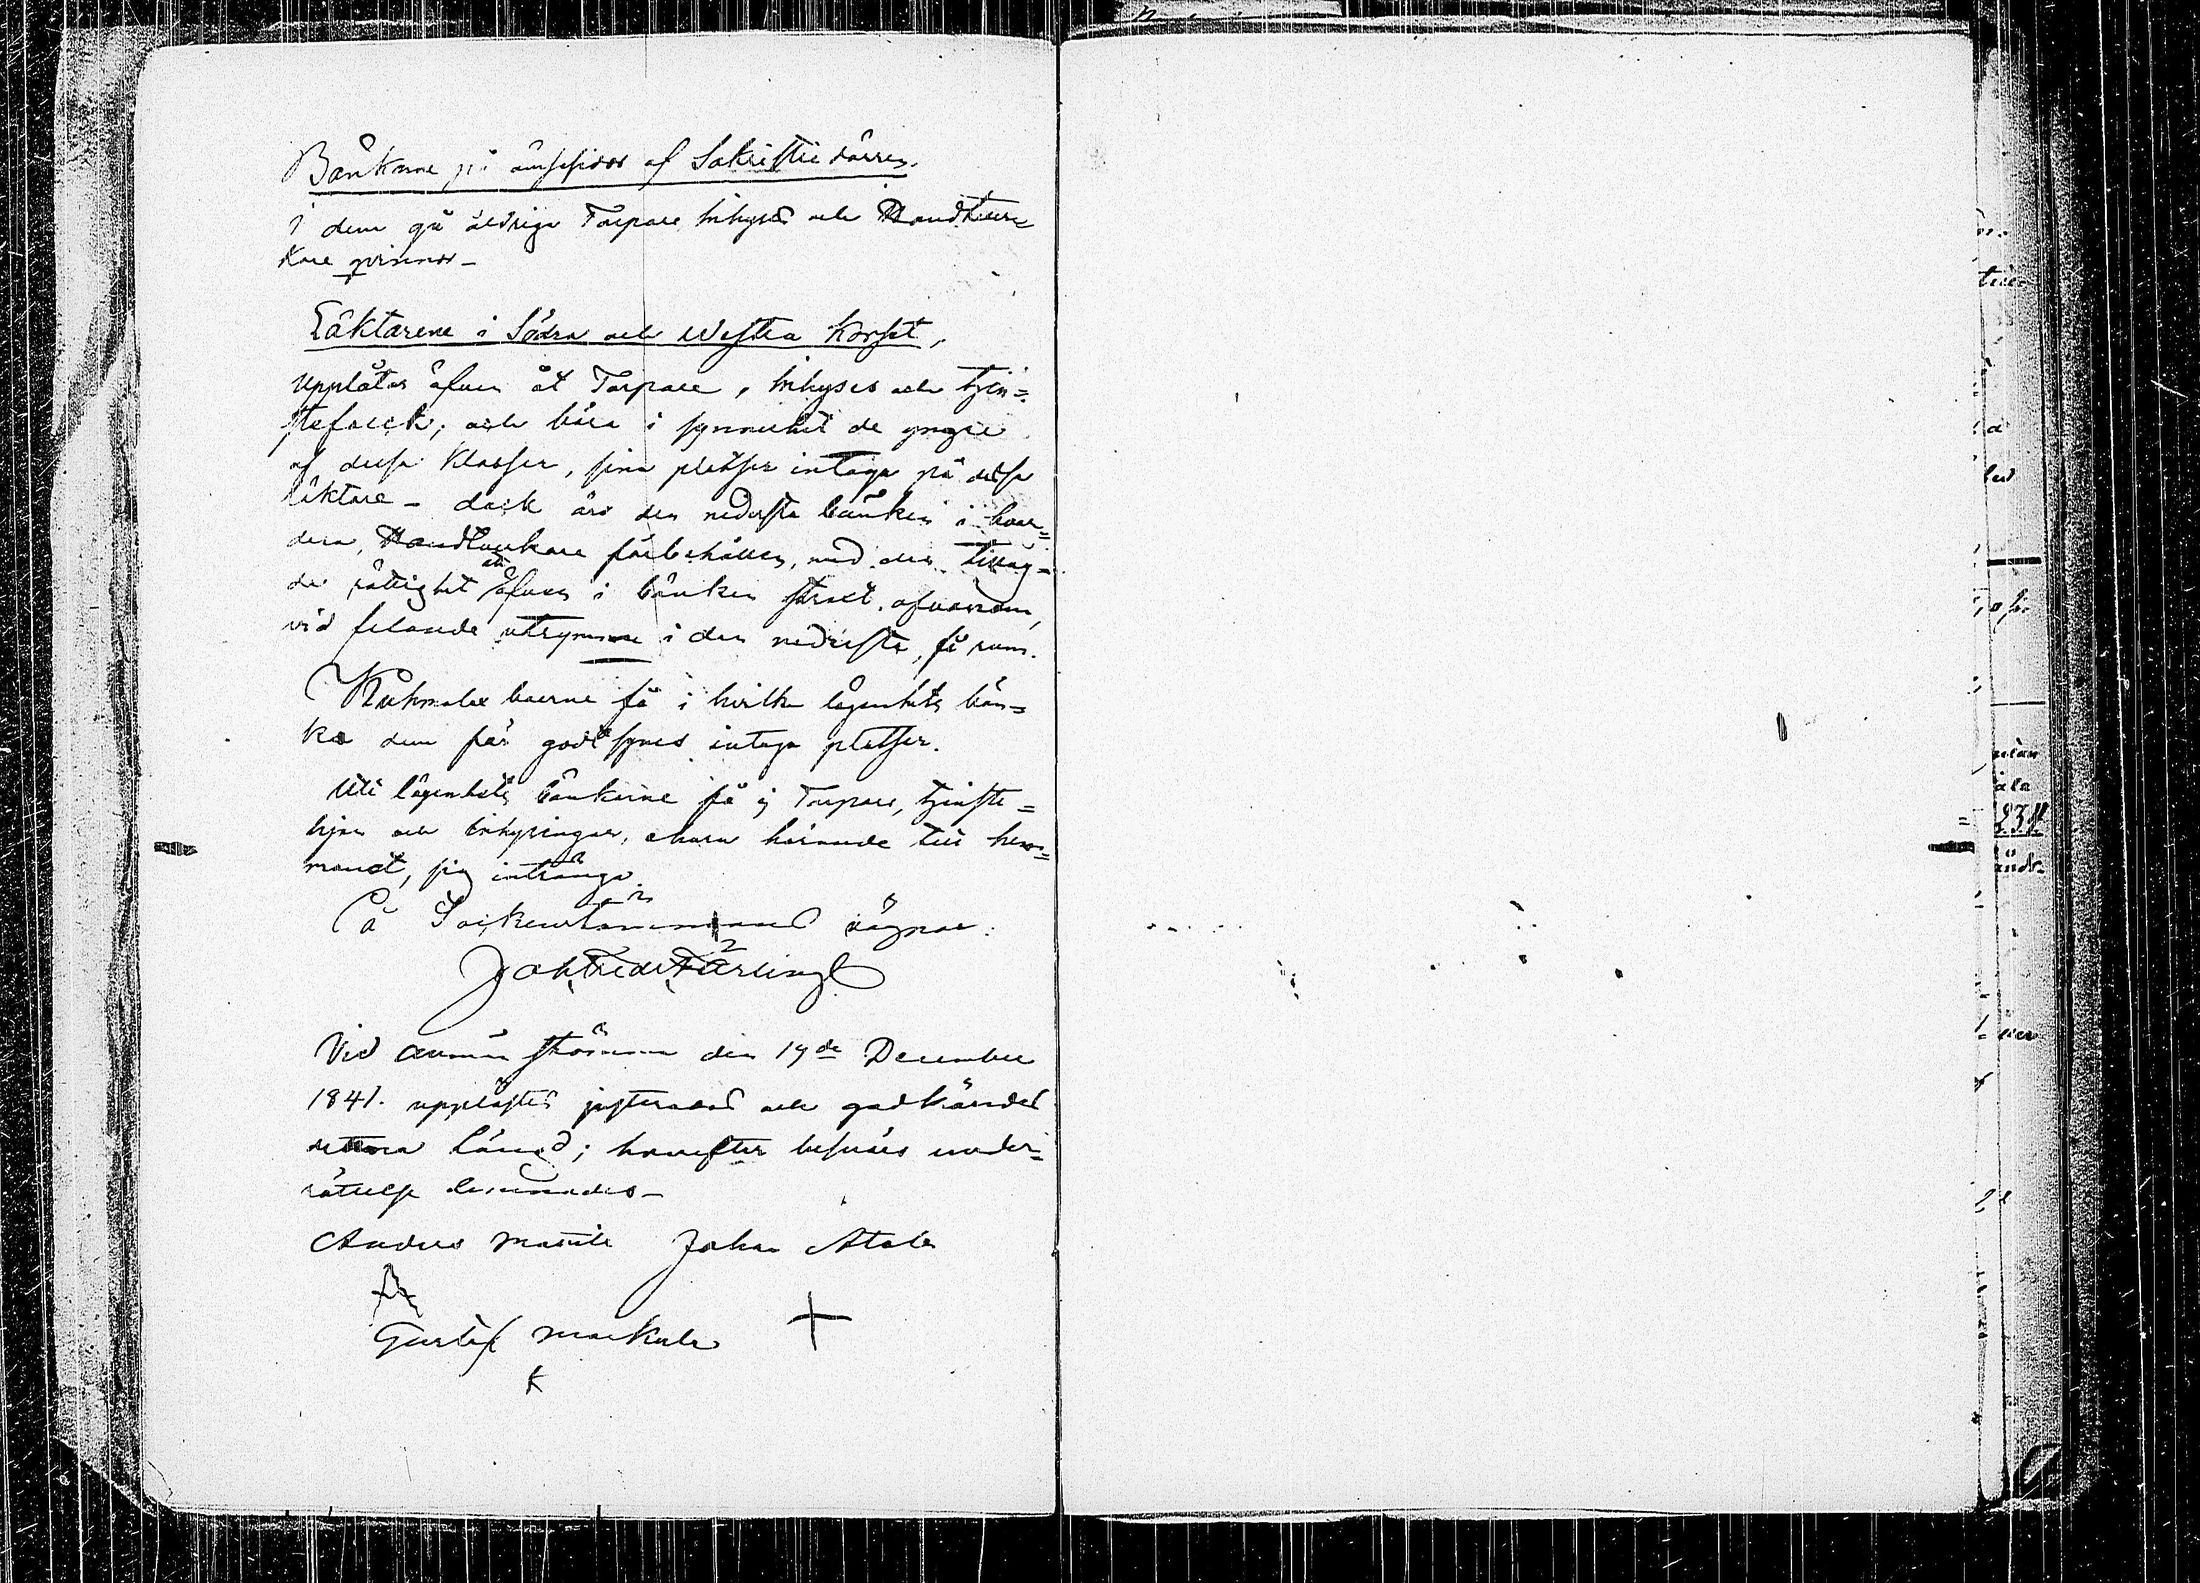 Bänkarne på ömse sidor af Sakristiedörren.
I dem gå åldriga Torpare Inhyses och Handtver
kare qvinnor –
Läktarene i Södra och Westra Korset,
upplåtas äfven åt Torpare, Inhyses och tjen=
stefolck; och böra i synnerhet de yngre
af dessa Klasser, sina platser intaga på dessa
läktare – dock äro den nedersta bänken i hvar=
dera, Handtverkare förbehållen, med den tillag=
da rättighet att äfven i bänken straxt ofvanom,
vid felande utrymme i den nedersta, få rum.
boerne få i hvilka lägenhets bän=
kar dem för godt synes intaga platser.
Uti lägenhets bänkarne få ej Torpare, tjenste=
hjon och Inhysingar, hörande till hem=
manet, sig intränga.
På Sockenstämmans vägnar:
Joh. Fredr. Färling
Vid allmän Stämma den 19de December
1841. upplästes justerades och godkändes
denna längd; hvarefter besvärs under=
rättelse lemnades –
Anders Mattila Johan Atola
Gustaf Markula
K